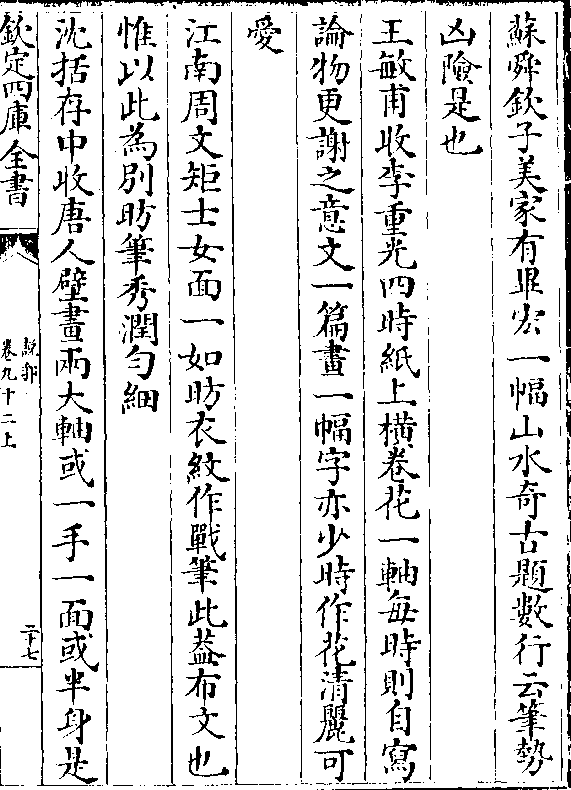 蘇舜欽子美家有畢宏一幅山水奇古題數行云筆勢
凶險是也
王敏甫收李重光四時紙上橫卷花一軸每時則自寫
論物更謝之意文一篇畫一幅字亦少時作花清麗可
愛
江南周文矩士女面一如昉衣紋作戰筆此葢布文也
惟以此為別昉筆秀潤勻細
沈括存中收唐人壁畫兩大軸或一手一面或半身是
欽定四庫全書
說郛
卷九十二上
二十七